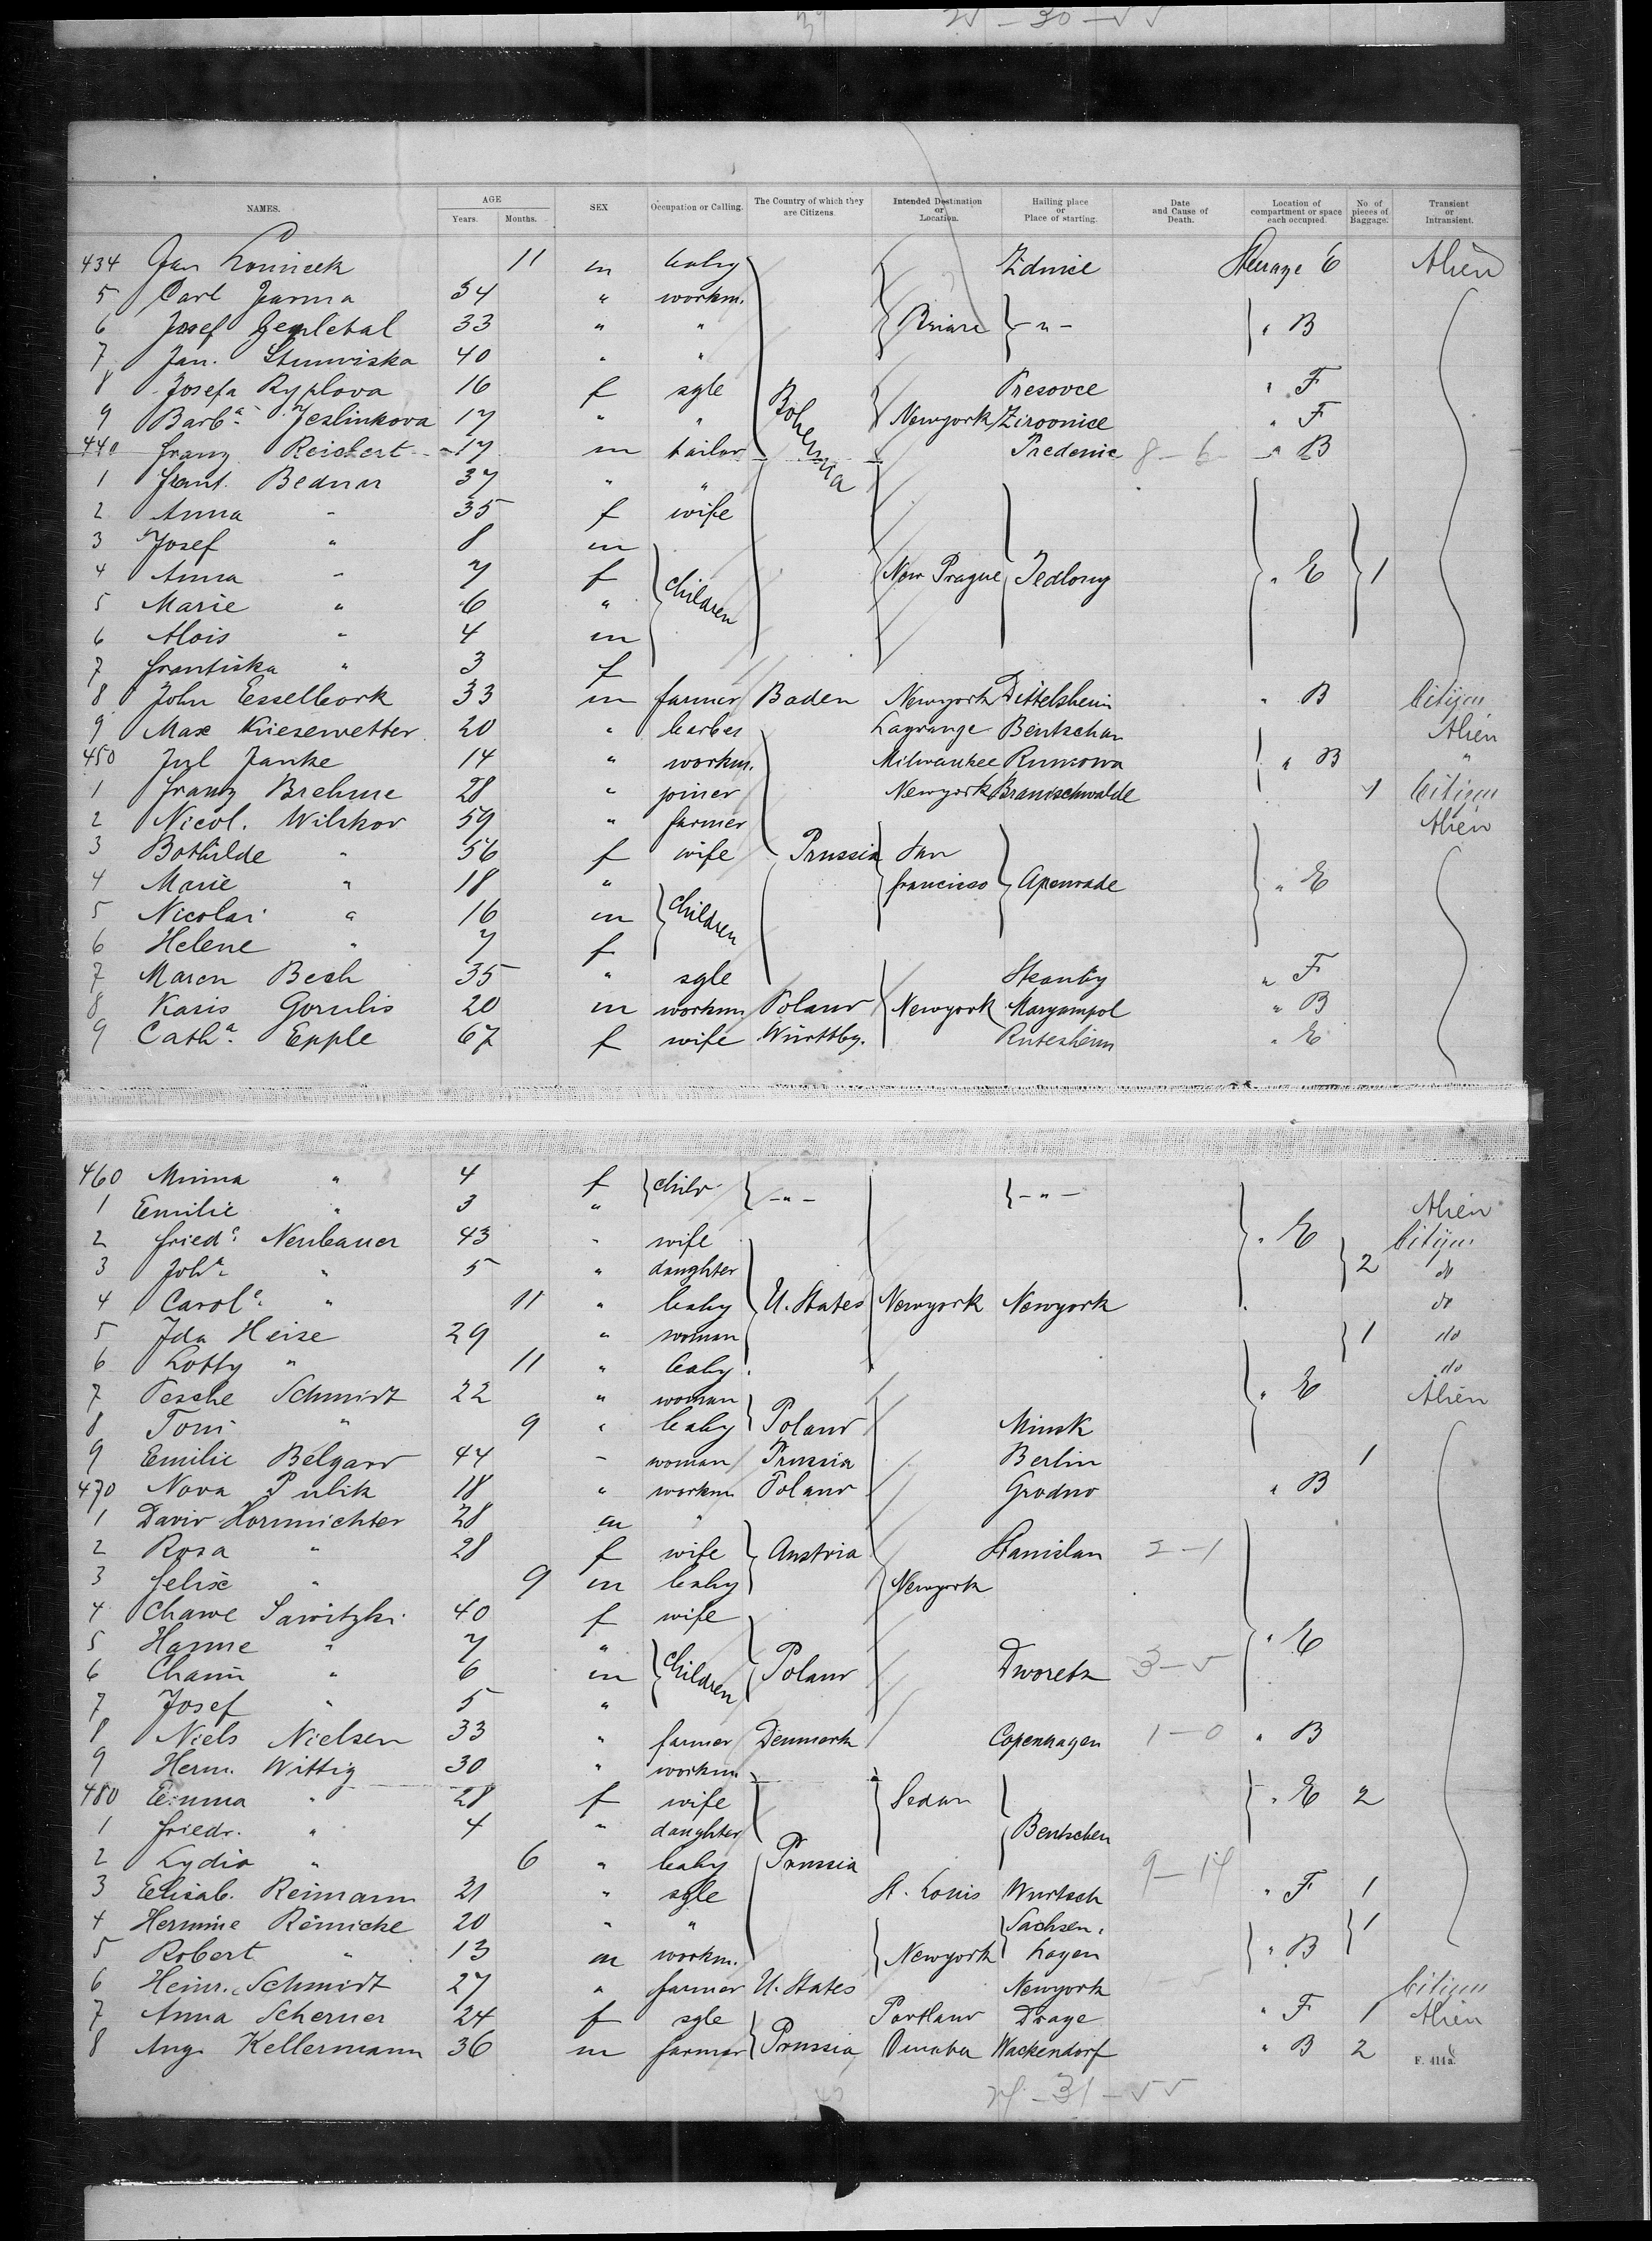 25-30-55
NAMES. AGE Years. Months. SEX Occupation or Calling. The Country of which they are Citizens. Intended Destination or Location. Hailing place or Place of starting. Date and Cause of Death. Location of compartment or space each occupied. No of pieces of Baggage. Transient or Intransient.
434 Jan 11 m baby Zdmice Steerage E Alien
5 Carl Jarma 34 " workm.
6 Josef 33 " " - " - " B
7 Jan. 40 " "
8 Josefa Ryplova 16 f sgle Bohemia Presovce " F
9 Barba Jeslinkova 17 " " Newyork Ziroonice " F
440 Franz Reichert 17 m tailor Predenic 8-6 " B
1 Frant. Bednar 37 " "
2 Anna " 35 f wife
3 Josef " 8 m
4 Anna " 7 f children New Prague Jedlony " E 1
5 Marie " 6 "
6 Alois " 4 m
7 Frantiska " 3 f
8 John Esselbork 33 m farmer Baden Newyork Dittelsheim " B Citizen
9 Max Kiesewetter 20 " barber Lagrange Bentschen Alien
450 Jul Janke 14 " workm. Milwaukee Runowa " B "
1 Franz Brehme 28 " joiner Newyork Braunschwalde 1 Citizen
2 Nicol. Wilskov 59 " farmer Alien
3 Bothilde " 56 f wife Prussia San
4 Marie " 18 " francisco Apenrade " E
5 Nicolai " 16 m children
6 Helene " 7 f
7 Maren Bech 35 " sgle " F
8 Karis Gorulis 20 m workm Poland Newyork Maryampol " B
9 Catha Epple 67 f wife Württbg. Rutesheim " E
460 Minna " 4 f childr - " - - " -
1 Emilie " 3 " Alien
2 Friedc Neubauer 43 " wife " E Citizen
3 Joha " 5 " daughter 2 do
4 Carole " 11 " baby U. States Newyork Newyork do
5 Ida Heise 29 " woman 1 do
6 Lotty " 11 " baby do
7 Pesche Schmidt 22 " woman " E Alien
8 Toni " 9 " baby Poland Minsk
9 Emilie Belgard 44 " woman Prussia Berlin 1
470 Nova Pulik 18 " workm Poland Grodno " B
1 David Hornnichter 28 m "
2 Rosa " 28 f wife Austria Stanislau 2-1
3 Felix " 9 m baby Newyork
4 Chawe Sawitzki 40 f wife
5 Hanne " 7 " " E
6 Chaim " 6 m children Poland Dworetz 3-5
7 Josef " 5 "
8 Niels Nielsen 33 " farmer Denmark Copenhagen 1-0 " B
9 Herm. Wittig 30 " workm.
480 Emma " 28 f wife Sedan " E 2
1 Friedr. " 4 " daughter Bentschen
2 Lydia " 6 " baby Prussia 9-14
3 Elisab. Reimann 21 " sgle St. Louis Wurtsch " F 1
4 Hermine Reinicke 20 " " Sachsen 1
5 Robert " 13 m workm. Newyork hagen " B
6 Heinr. Schmidt 27 " farmer U. States Newyork Citizen
7 Anna Scherner 24 f sgle Portland Drage " F 1 Alien
8 Aug. Kellermann 36 m farmer Prussia Omaha Wackendorf " B 2
F. 414a.
24-31-55